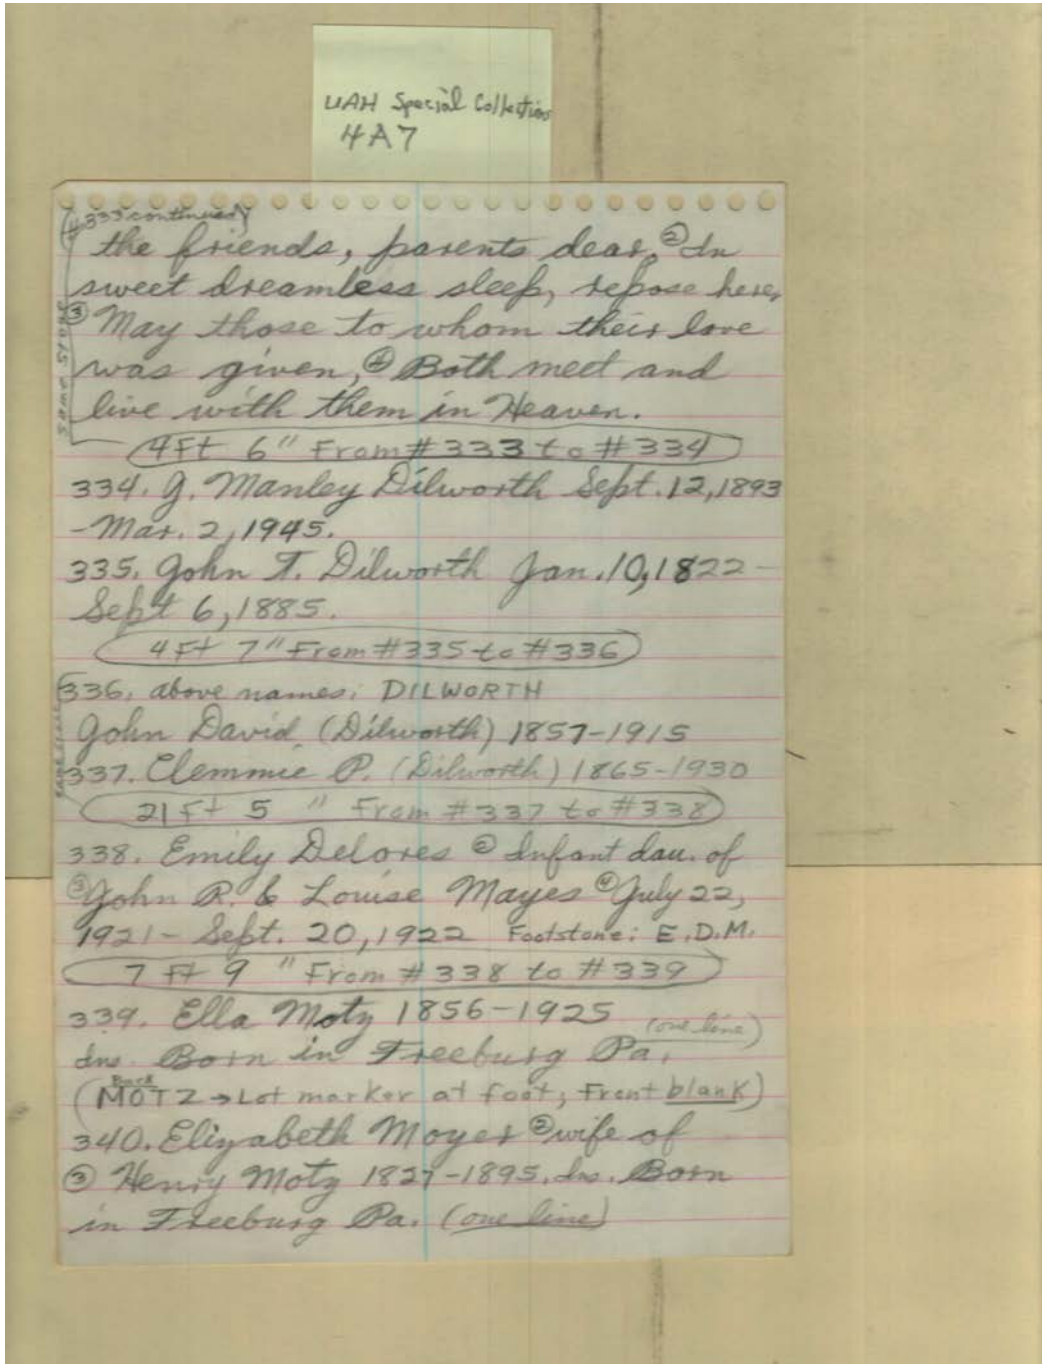 UAH Special Collections
4A7
(#333 continued)
the friends, parents dear. ② In
sweet dreamless sleep, repose here,
③ May those to whom their love
was given, ④ Both meet and
live with them in Heaven.
same stone
4Ft 6" From #333 to #334
334. J. Manley Dilworth Sept. 12, 1893
-Mar. 2, 1945.
335. John T. Dilworth Jan. 10, 1822-
Sept 6, 1885.
4Ft 7" From #335 to #336
336. above names: DILWORTH
John David (Dilworth) 1857-1915
same stone
337. Clemmie P. (Dilworth) 1865-1930
21Ft 5 " From #337 to #338
338. Emily Delores ② Infant dau. of
③ John R. & Louise Mayes ④ July 22,
1921- Sept. 20, 1922 Footstone: E.D.M.
7 Ft 9 " From #338 to #339
339. Ella Motz 1856-1925
Ins. Born in Freeburg Pa. (one line)
(Back MOTZ → Lot marker at foot, Front blank)
340. Elizabeth Moyer ② wife of
③ Henry Motz 1827-1895. Ins. Born
in Freeburg Pa. (one line)